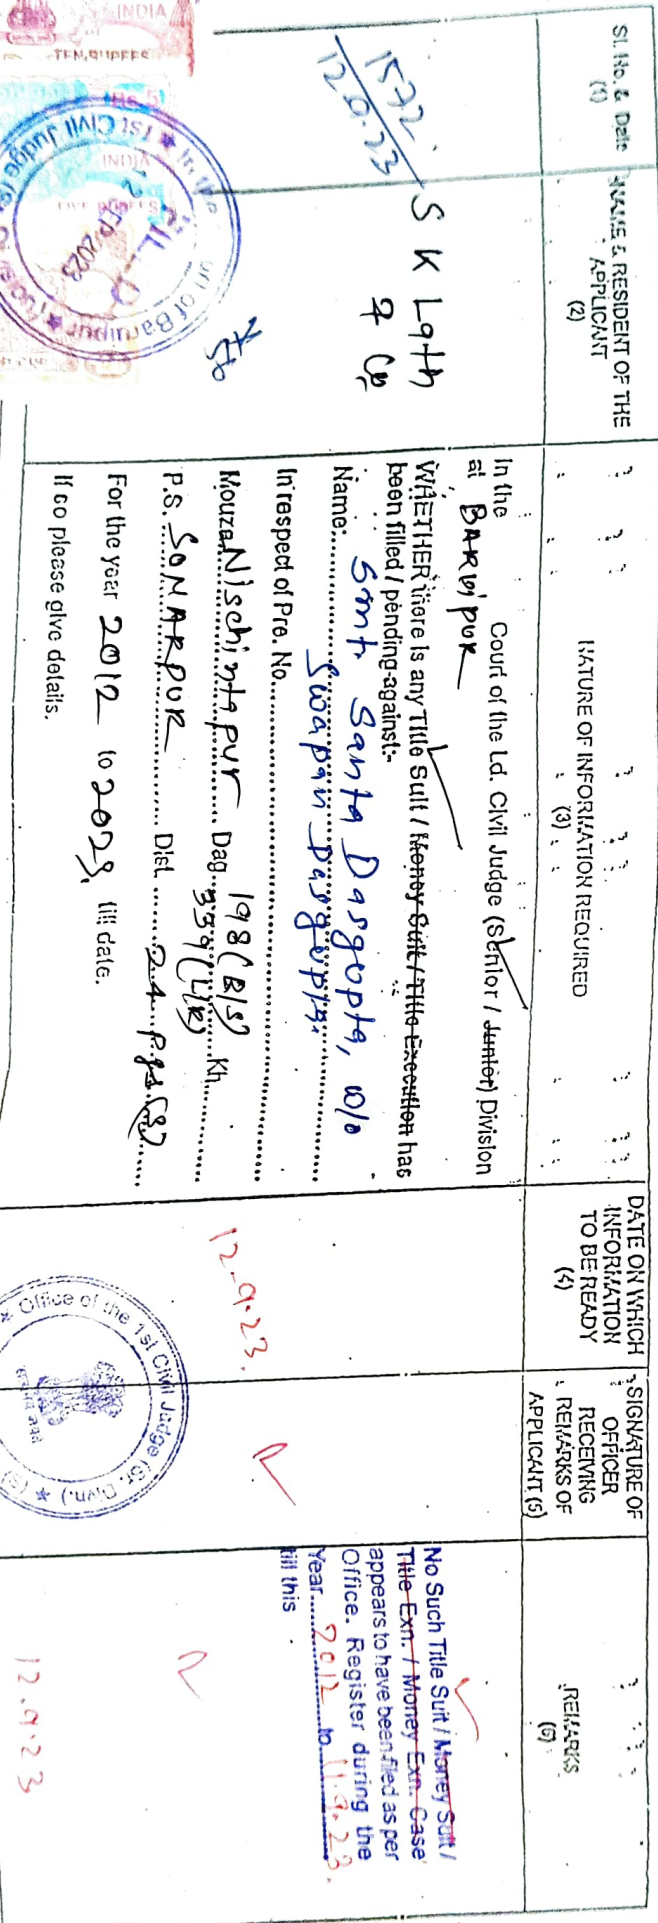 Sl. No. & Date
(1)
NAME & RESIDENT OF THE
APPLICANT
(2)
NATURE OF INFORMATION REQUIRED
(3)
DATE ON WHICH
INFORMATION
TO BE READY
(4)
SIGNATURE OF
OFFICER
RECEIVING
REMARKS OF
APPLICANT (5)
REMARKS
(6)
1572
12.9.23
S K Lath
& Co
In the Court of the Ld. Civil Judge (Senior / Junior) Division
at BARUIPUR
WHETHER there is any Title Suit / Money Suit / Title Execution has
been filled / pending against:-
Name: Smt Santa Dasgupta, W/o
Swapan Dasgupta.
In respect of Pre. No.
Mouza Nischintapur Dag 198 (R/S)
339 (L/R) Kh.
P.S. SONARPUR Dist. 24 Pgs (S)
For the year 2012 to 2023, till date.
If so please give details.
12.9.23.
No Such Title Suit / Money Suit /
Title Exn. / Money Exn. Case
appears to have been filed as per
Office. Register during the
Year 2012 to 11.9.23.
till this
12.9.23
Office of the 1st Civil Judge (Sr. Divn.)
INDIA
TEN RUPEES
Rs. 5
INDIA
FIVE RUPEES
1st Civil Judge (S
of Baruipur
SEP 2023